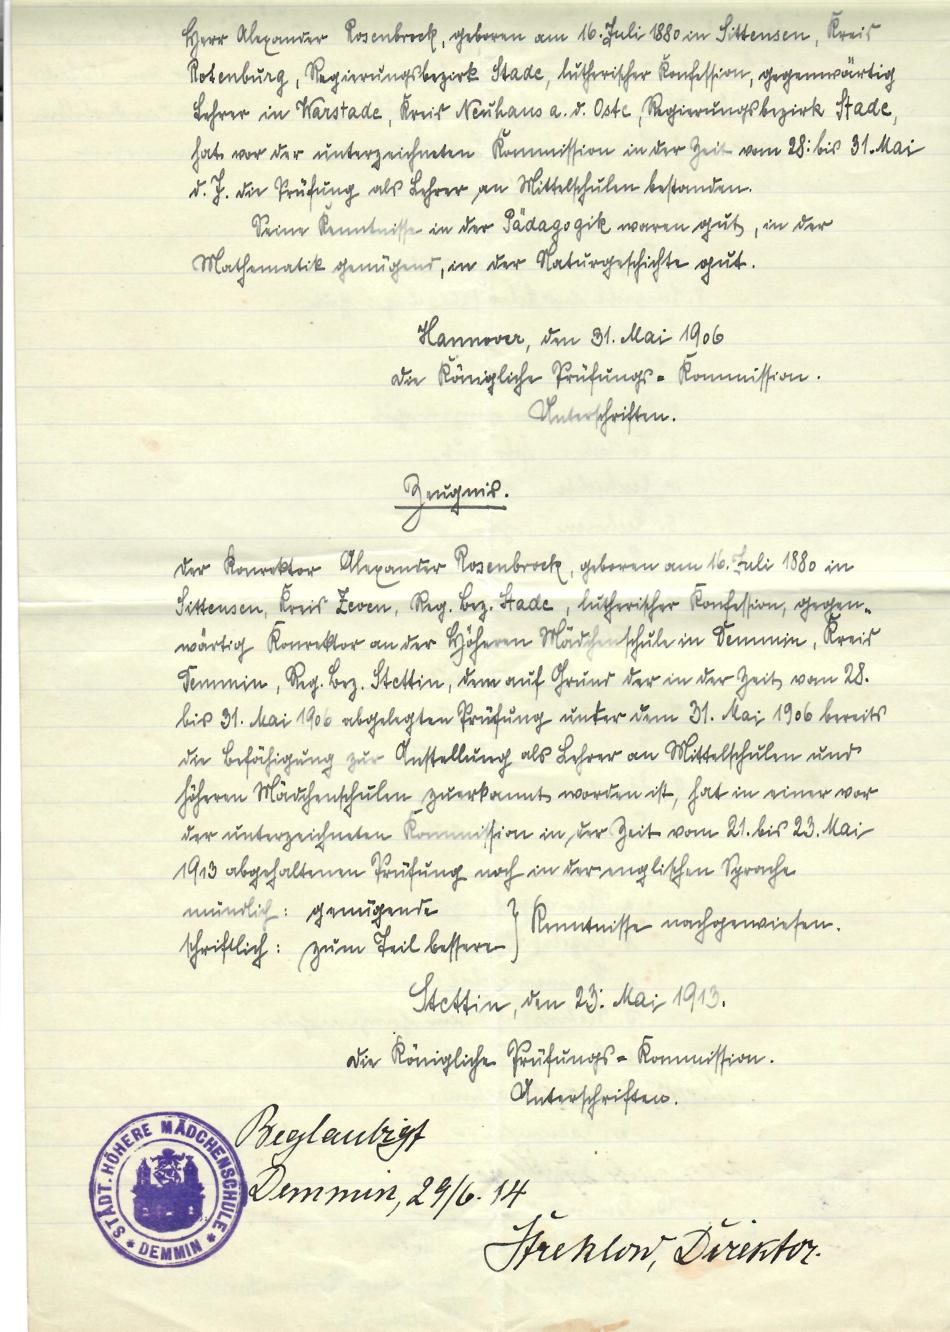 Herr Alexander Rosenbrock, geboren am 16. Juli 1880 in Sittensen, Kreis
Rotenburg, Regierungsbezirk Stade, lutherischer Konfession, gegenwärtig
Lehrer in Warstade, Kreis Neuhaus a. d. Oste, Regierungsbezirk Stade,
hat vor der unterzeichneten Kommission in der Zeit vom 28. bis 31. Mai
d. J. die Prüfung als Lehrer an Mittelschulen bestanden.
Seine Kenntnisse in der Pädagogik waren gut, in der
Mathematik genügend, in der Naturgeschichte gut.
Hannover, den 31. Mai 1906
Die Königliche Prüfungs-Kommission.
Unterschriften.
Zeugnis.
Der Konrektor Alexander Rosenbrock, geboren am 16. Juli 1880 in
Sittensen, Kreis Zeven, Reg. Bez. Stade, lutherischer Konfession, gegen-
wärtig Konrektor an der Höheren Mädchenschule in Demmin, Kreis
Demmin, Reg. Bez. Stettin, dem auf Grund der in der Zeit vom 28.
bis 31. Mai 1906 abgelegten Prüfung unter dem 31. Mai 1906 bereits
die Befähigung zur Anstellung als Lehrer an Mittelschulen und
höheren Mädchenschulen zuerkannt worden ist, hat in einer vor
der unterzeichneten Kommission in der Zeit vom 21. bis 23. Mai
1913 abgehaltenen Prüfung noch in der englischen Sprache
mündlich: genügende
schriftlich: zum Teil bessere } Kenntnisse nachgewiesen.
Stettin, den 23. Mai 1913.
Die Königliche Prüfungs-Kommission.
Unterschriften.
Beglaubigt
Demmin, 29/6. 14
Strehlow, Direktor.
STÄDT. HÖHERE MÄDCHENSCHULE
* DEMMIN *